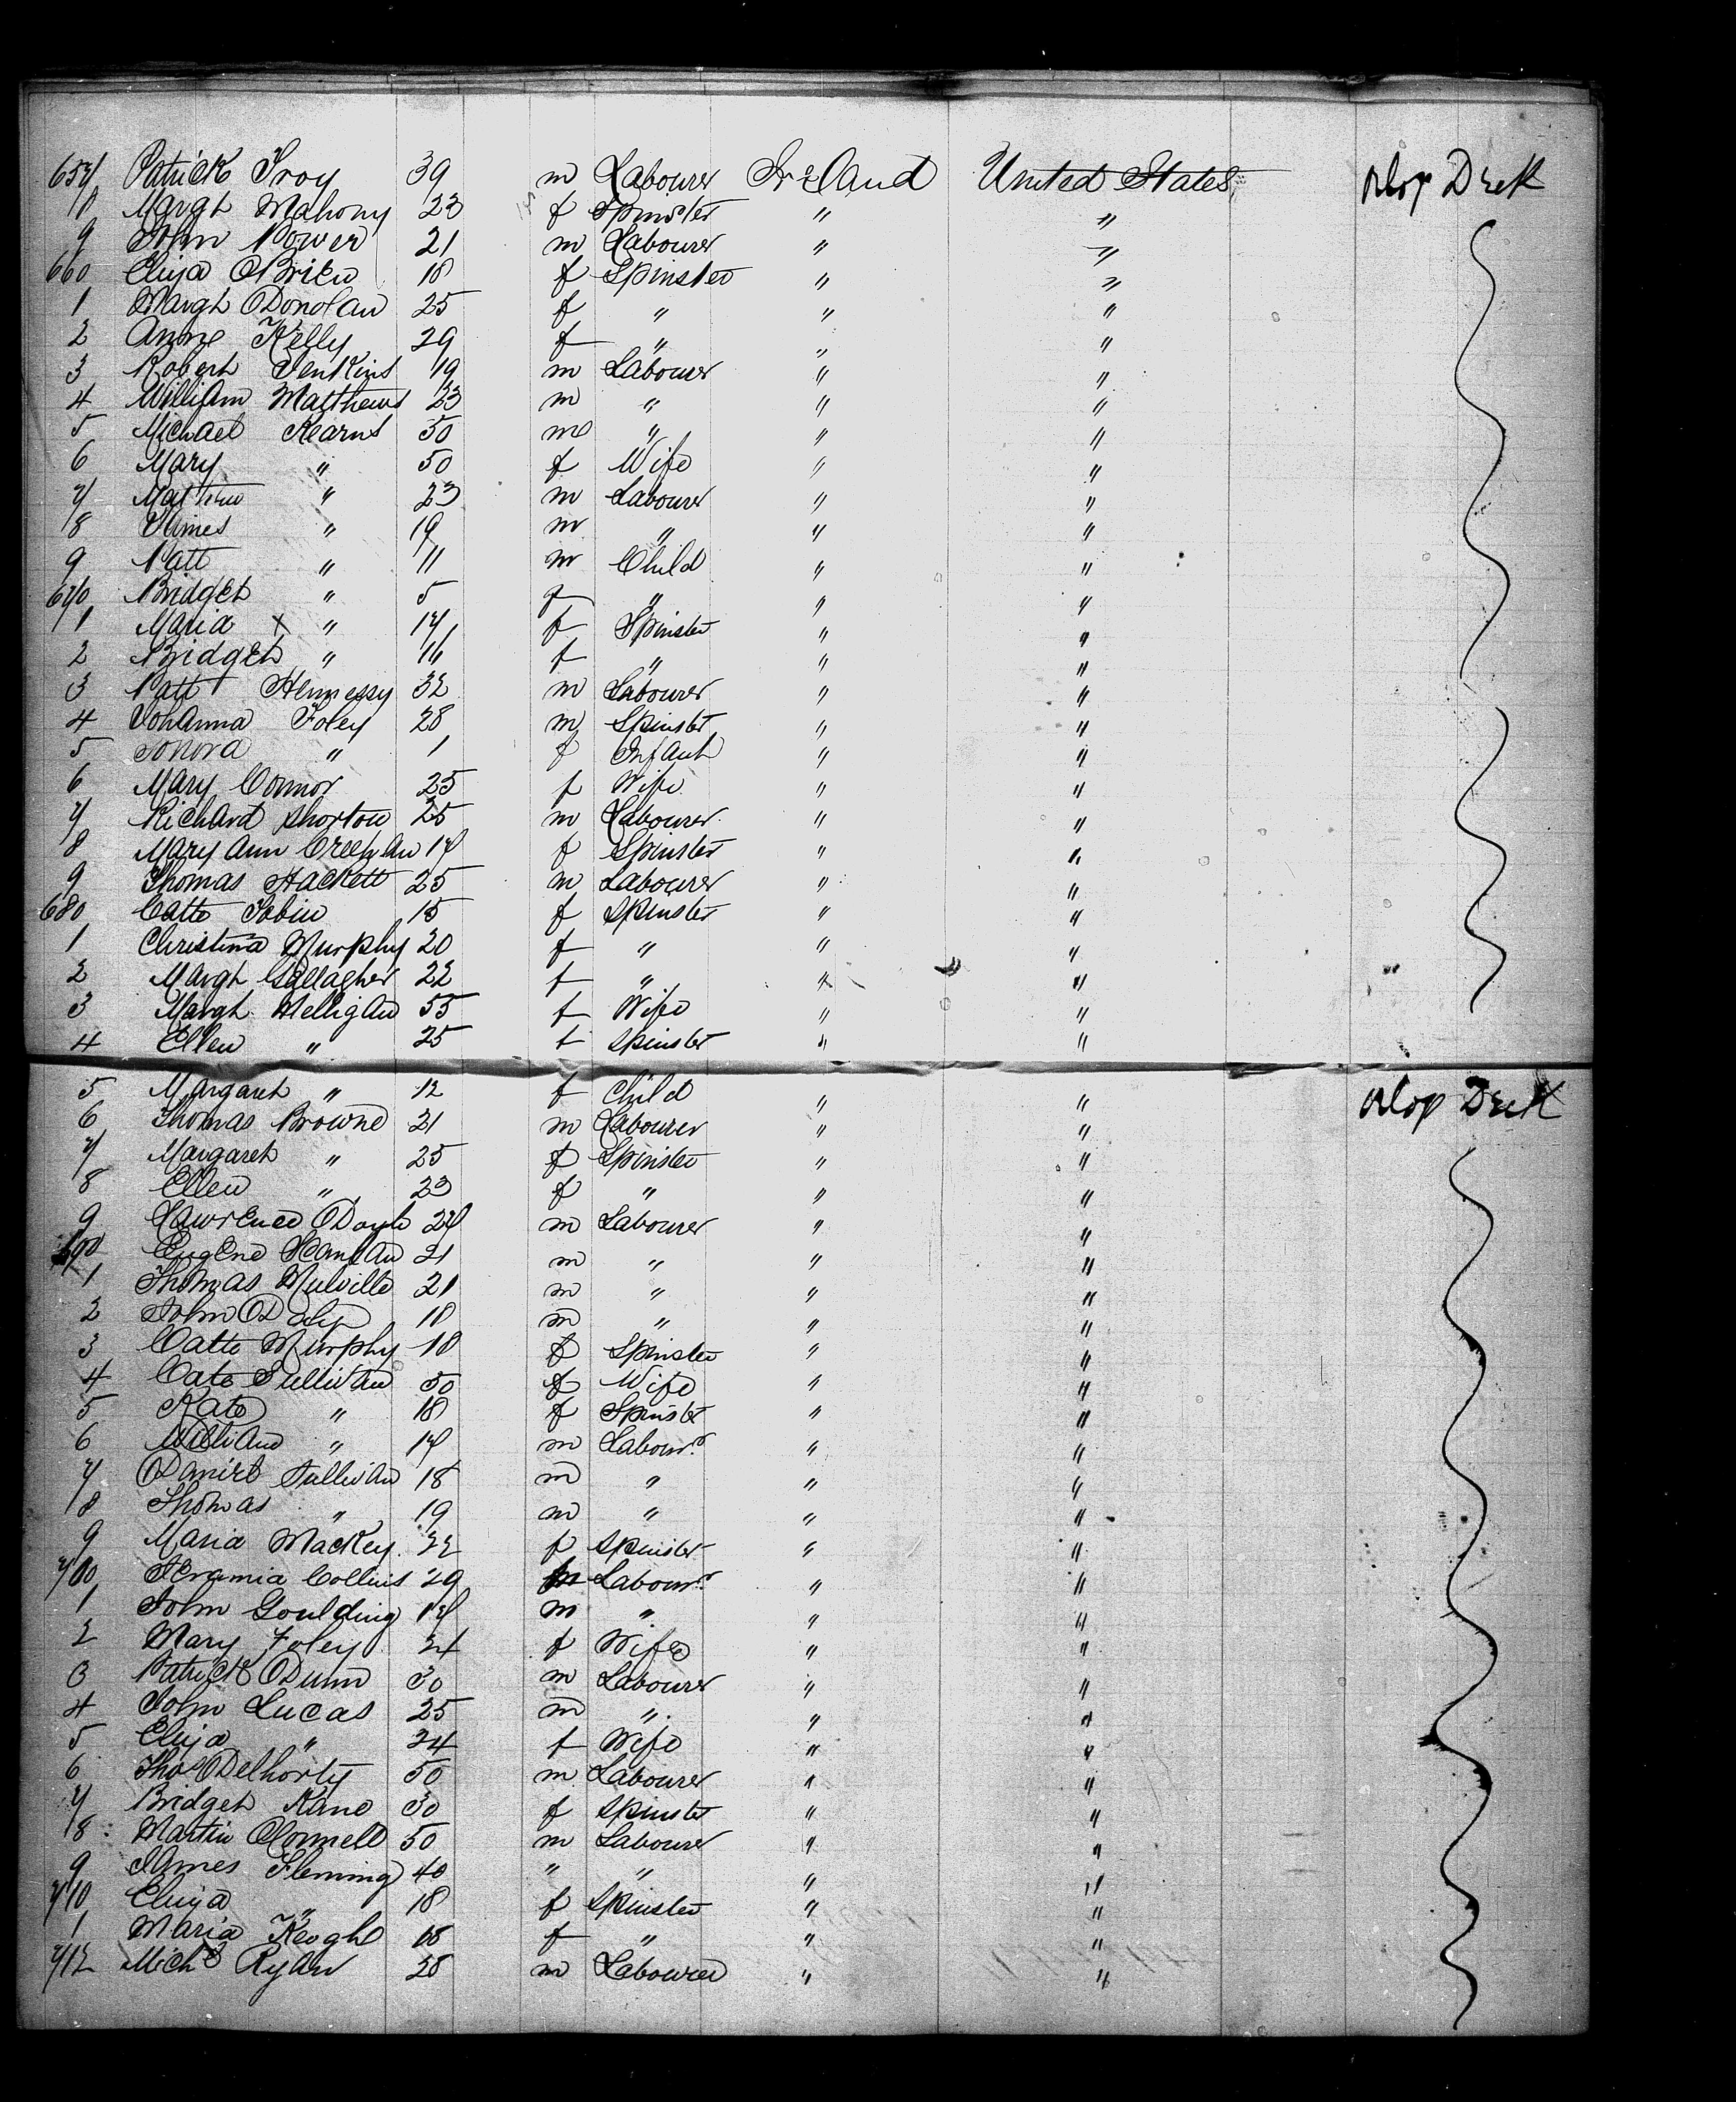 657 Patrick Troy 39 m Labourer Ireland United States Orlop Deck
8 Margt Mahony 23 f Spinster " "
9 John Power 21 m Labourer " "
660 Eliza OBrien 18 f Spinster " "
1 Margt ODonolan 25 f " " "
2 Anne Kelly 29 f " " "
3 Robert Jenkins 19 m Labourer " "
4 William Matthews 23 m " " "
5 Michael Kearns 50 m " " "
6 Mary " 50 f Wife " "
7 Matthew " 23 m Labourer " "
8 James " 19 m " " "
9 Patt " 11 m Child " "
670 Bridget " 5 f " " "
1 Maria x " 17 f Spinster " "
2 Bridget " 16 f " " "
3 Patt Hennessy 32 m Labourer " "
4 Johanna Foley 28 m Spinster " "
5 Honora " 1 f Infant " "
6 Mary Connor 25 f Wife " "
7 Richard Shorton 25 m Labourer " "
8 Mary Ann 17 f Spinster " "
9 Thomas Hackett 25 m Labourer " "
680 Catte Tobin 15 f Spinster " "
1 Christina Murphy 20 f " " "
2 Margt Gallagher 22 f " " "
3 Margt Melligan 55 f Wife " "
4 Ellen " 25 f Spinster " "
5 Margaret " 12 f Child " " Orlop Deck
6 Thomas Browne 21 m Labourer " "
7 Margaret " 25 f Spinster " "
8 Ellen " 23 f " " "
9 Lawrence ODoyle 27 m Labourer " "
690 Eugene Hanlan 21 m " " "
1 Thomas Mulville 21 m " " "
2 John ODaly 18 m " " "
3 Catte Murphy 18 f Spinster " "
4 Cate Sullivan 50 f Wife " "
5 Kate " 18 f Spinster " "
6 William " 17 m Labourr " "
7 Daniel Sullivan 18 m " " "
8 Thomas " 19 m " " "
9 Maria Mackey 22 f Spinster " "
700 Jeramia Collins 29 m Labourr " "
1 John Goulding 17 m " " "
2 Mary Foley 24 f Wife " "
3 Patrick ODunn 30 m Labourer " "
4 John Lucas 25 m " " "
5 Eliza " 24 f Wife " "
6 Thos Delhorty 50 m Labourer " "
7 Bridget Kane 30 f Spinster " "
8 Martin OConnell 50 m Labourer " "
9 James Fleming 40 " " " "
710 Eliza " 18 f Spinster " "
1 Maria Keogh 18 f " " "
712 Michl Ryan 28 m Labourer " "